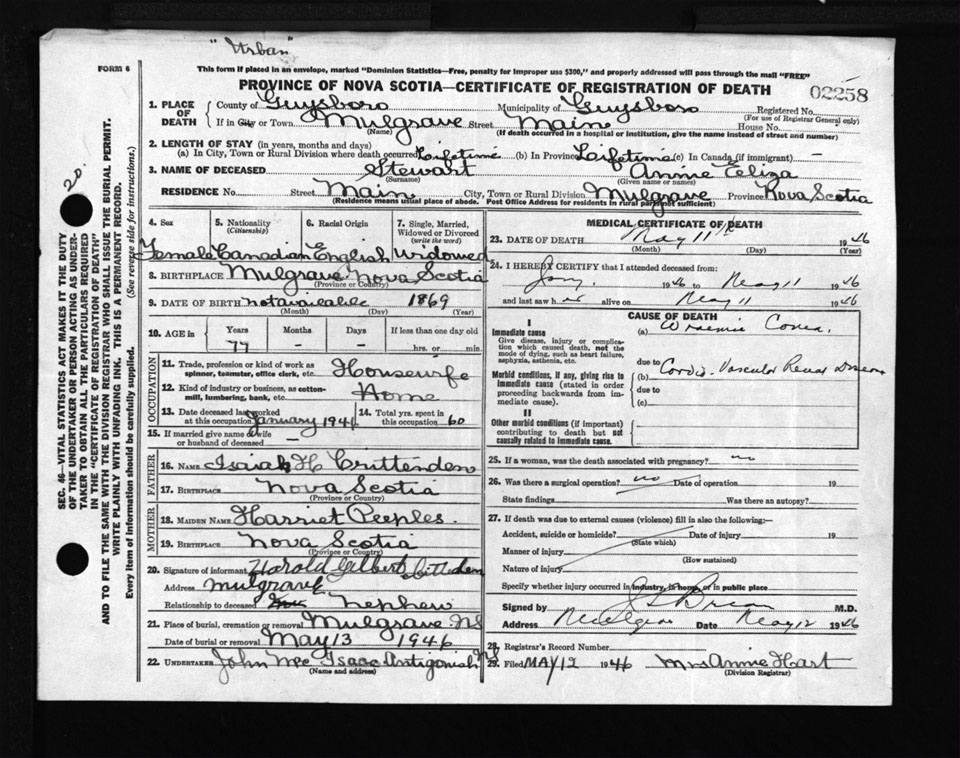 "Urban"
FORM 6
This form if placed in an envelope, marked "Dominion Statistics—Free, penalty for improper use $300," and properly addressed will pass through the mail "FREE"
PROVINCE OF NOVA SCOTIA—CERTIFICATE OF REGISTRATION OF DEATH
02258
1. PLACE OF DEATH
County of Guysboro Municipality of Guysboro Registered No.
(For use of Registrar General only)
If in City or Town Mulgrave Street Main House No.
(Name) (If death occurred in a hospital or institution, give the name instead of street and number)
2. LENGTH OF STAY (in years, months and days)
(a) In City, Town or Rural Division where death occurred Lifetime (b) In Province Lifetime (c) In Canada (if immigrant) —
3. NAME OF DECEASED Stewart Annie Eliza
(Surname) (Given name or names)
RESIDENCE No. Street Main City, Town or Rural Division Mulgrave Province Nova Scotia
(Residence means usual place of abode. Post Office Address for residents in rural parts not sufficient)
4. Sex
5. Nationality (Citizenship)
6. Racial Origin
7. Single, Married, Widowed or Divorced (write the word)
Female Canadian English Widowed
8. BIRTHPLACE Mulgrave Nova Scotia
(Province or Country)
9. DATE OF BIRTH not available 1869
(Month) (Day) (Year)
10. AGE in
Years Months Days If less than one day old
77 — — hrs. or min.
OCCUPATION
11. Trade, profession or kind of work as spinner, teamster, office clerk, etc. Housewife
12. Kind of industry or business, as cotton-mill, lumbering, bank, etc. Home
13. Date deceased last worked at this occupation January 1941
14. Total yrs. spent in this occupation 60
15. If married give name of wife or husband of deceased —
FATHER
16. NAME Isaiah H Crittenden
17. BIRTHPLACE Nova Scotia
(Province or Country)
MOTHER
18. MAIDEN NAME Harriet Peeples.
19. BIRTHPLACE Nova Scotia
(Province or Country)
20. Signature of informant Harold Gilbert Crittenden
Address Mulgrave
Relationship to deceased nephew
21. Place of burial, cremation or removal Mulgrave NS
Date of burial or removal May 13 1946
22. UNDERTAKER John Mc Isaac Antigonish NS
(Name and address)
MEDICAL CERTIFICATE OF DEATH
23. DATE OF DEATH May 11th 1946
(Month) (Day) (Year)
24. I HEREBY CERTIFY that I attended deceased from:
Jany. 1946 to May 11 1946
and last saw her alive on May 11 1946
CAUSE OF DEATH
I
Immediate cause (a) Uraemic Coma.
Give disease, injury or complication which caused death, not the mode of dying, such as heart failure, asphyxia, asthenia, etc.
due to
Morbid conditions, if any, giving rise to immediate cause (stated in order proceeding backwards from immediate cause).
(b) Cardio Vascular Renal Disease
due to
(c)
II
Other morbid conditions (if important) contributing to death but not causally related to immediate cause.
25. If a woman, was the death associated with pregnancy? no
26. Was there a surgical operation? no Date of operation 19
State findings Was there an autopsy?
27. If death was due to external causes (violence) fill in also the following:—
Accident, suicide or homicide? Date of injury 19
(State which)
Manner of injury
(How sustained)
Nature of injury
Specify whether injury occurred in industry, in home, or in public place
Signed by M.D.
Address Mulgrave Date May 12 1946
28. Registrar's Record Number
29. Filed MAY 12 1946 Mrs Annie Hart
(Division Registrar)
20
SEC. 46—VITAL STATISTICS ACT MAKES IT THE DUTY
OF THE UNDERTAKER OR PERSON ACTING AS UNDER-
TAKER TO OBTAIN ALL THE PARTICULARS REQUIRED
IN THE "CERTIFICATE OF REGISTRATION OF DEATH"
AND TO FILE THE SAME WITH THE DIVISION REGISTRAR WHO SHALL ISSUE THE BURIAL PERMIT.
WRITE PLAINLY WITH UNFADING INK. THIS IS A PERMANENT RECORD.
Every item of information should be carefully supplied. (See reverse side for instructions.)